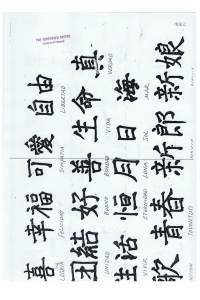 喜 幸福 可愛 自由
FELICIDAD SIMPATÍA LIBERTAD
团結 好 善 生命 真
UNIDAD BUENO BONDAD VIDA VERDAD
生活 恒 月 日 海
VIVIR ETERNIDAD LUNA SOL MAR
歌 青春 新郎 新娘